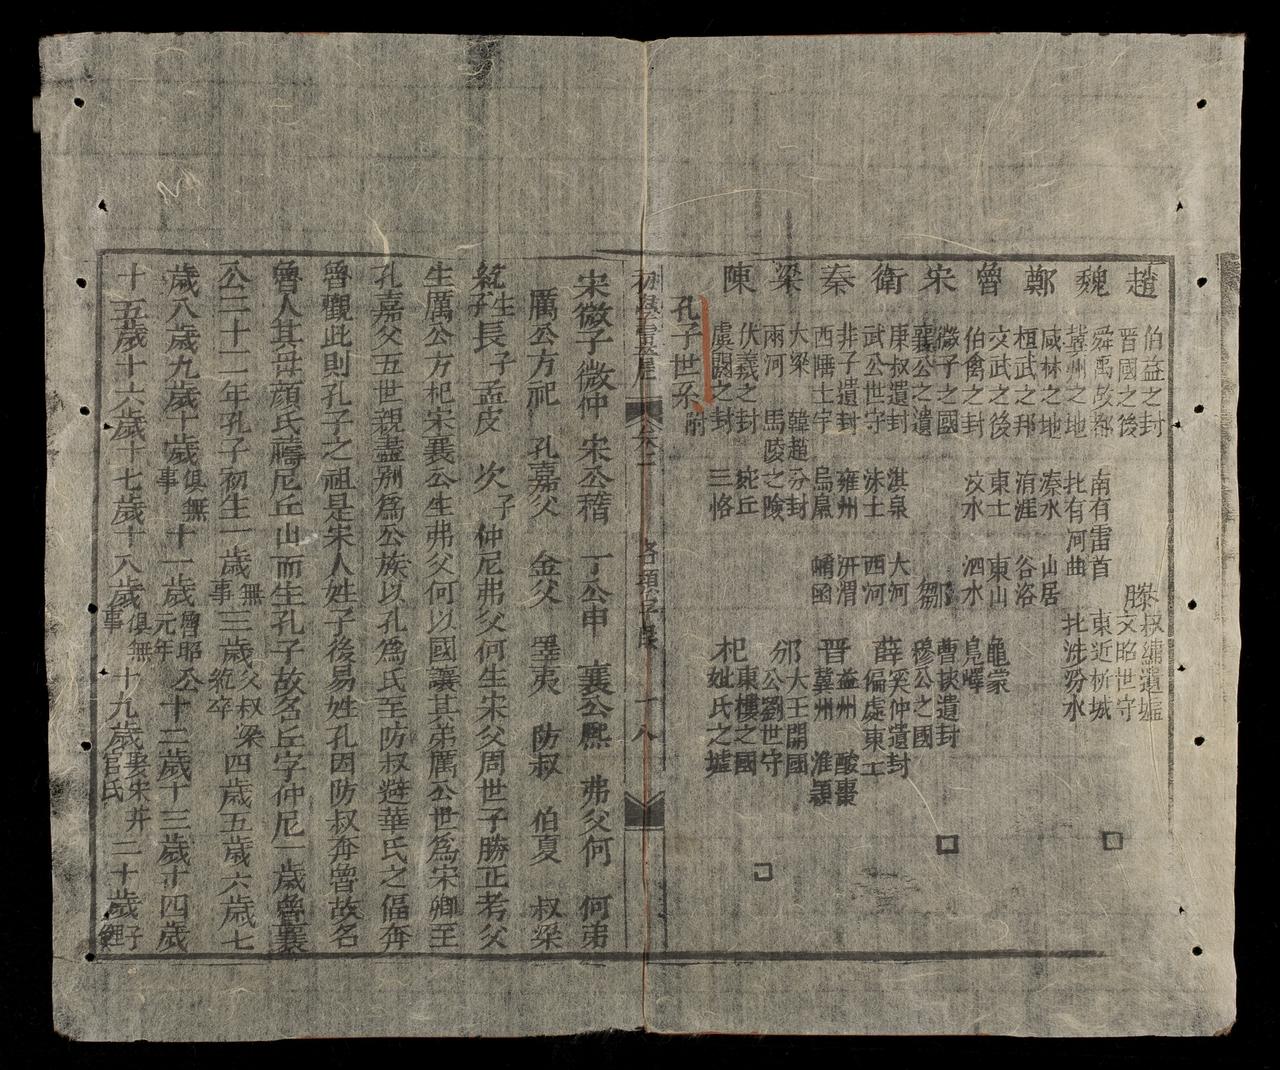 趙 伯益之封 晋國之後
魏 舜禹故都 南有雷首 東近析城 冀州之地 北有河曲 北洗汾水
鄭 咸林之地 溱水 山居 桓武之邦 洧涯 谷浴
魯 文武之後 東土 東山 龜蒙 伯禽之封 汶水 泗水 鳬嶧
宋 微子之國 襄公之遺
衛 康叔遺封 淇泉 大河 武公世守 沬土 西河
秦 非子遺封 雍州 汧渭 西陲土宇 烏鼠 崤函
梁 大梁 韓趙分封 兩河 馬陵之險
陳 伏羲之封 宛丘 虞閼之封 三恪
滕 叔繡遺墟 文昭世守
鄒 曹挾遺封 穆公之國
薛 奚仲遺封 偏處東土
晋 益州 酸棗 冀州 淮潁
邠 大王開國 公劉世守
杞 東樓之國 姒氏之墟
孔子世系附
卷二 各項字㨾 十八
宋微子微仲 宋公稽 丁公申 襄公熙 弗父何 何弟
厲公方祀 孔嘉父 金父 睪夷 防叔 伯夏 叔梁
紇生子長子孟皮 次子仲尼弗父何生宋父周世子勝正考父
生厲公方杞宋襄公生弗父何以國讓其弟厲公世爲宋卿至
孔嘉父五世親盡別爲公族以孔爲氏至防叔避華氏之偪奔
魯觀此則孔子之祖是宋人姓子後易姓孔因防叔奔魯故名
魯人其母顔氏禱尼丘山而生孔子故名丘字仲尼一歲魯襄
公二十二年孔子初生一歲無事三歲父叔梁紇卒四歲五歲六歲七
歲八歲九歲十歲俱無事十一歲魯昭公元年十二歲十三歲十四歲
十五歲十六歲十七歲十八歲俱無事十九歲娶宋亓官氏二十歲子鯉